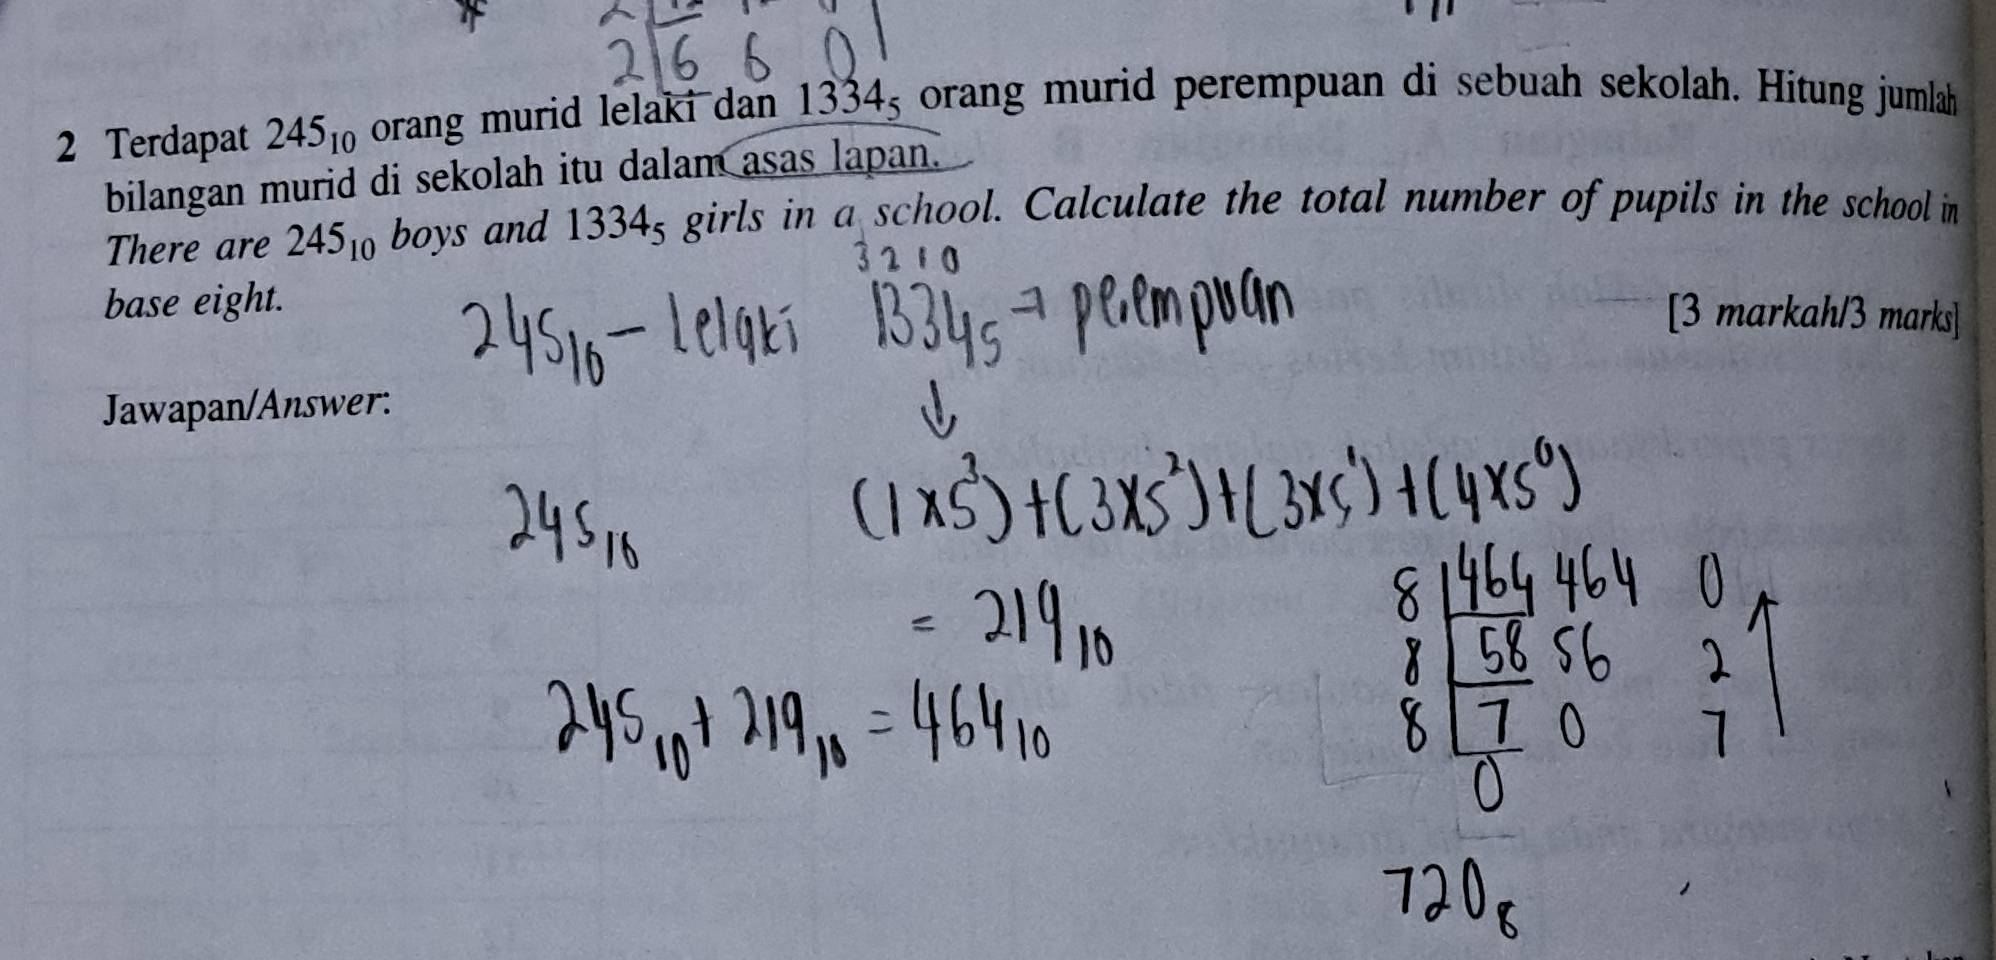 2 6 6 0
2 Terdapat 245₁₀ orang murid lelaki dan 1334₅ orang murid perempuan di sebuah sekolah. Hitung jumlah
bilangan murid di sekolah itu dalam asas lapan.
There are 245₁₀ boys and 1334₅ girls in a school. Calculate the total number of pupils in the school in
base eight.
[3 markah/3 marks]
3 2 1 0
245₁₀ - lelaki 1334₅ → perempuan
↓
Jawapan/Answer:
245₁₀ (1×5³)+(3×5²)+(3×5¹)+(4×5⁰)
= 219₁₀
245₁₀ + 219₁₀ = 464₁₀
8 464 464 0
8 58 56 2
8 7 0 7
0
720₈